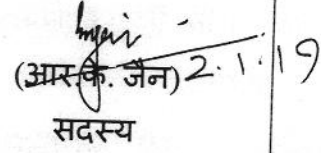 (आर.के. जैन) 2.1.19
सदस्य